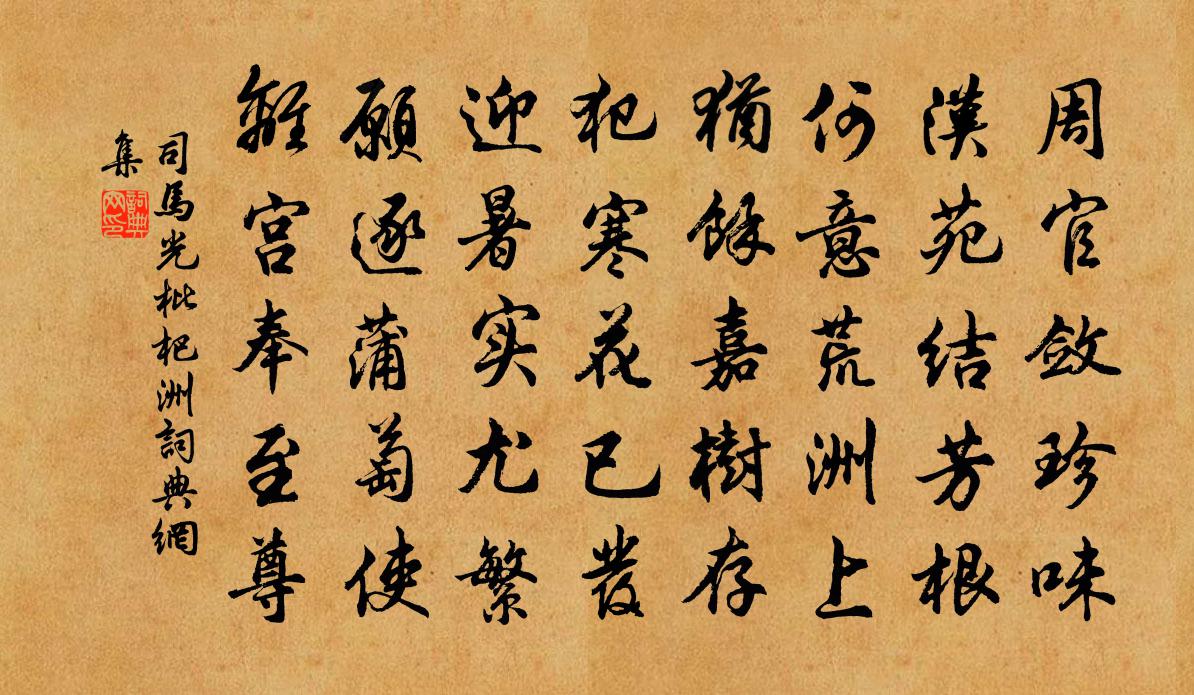 周官斂珍味
漢苑结芳根
何意荒洲上
猶餘嘉樹存
犯寒花已發
迎暑实尤繁
願逐蒲萄使
離宫奉至尊
司馬光枇杷洲詞典網
集
詞典網印